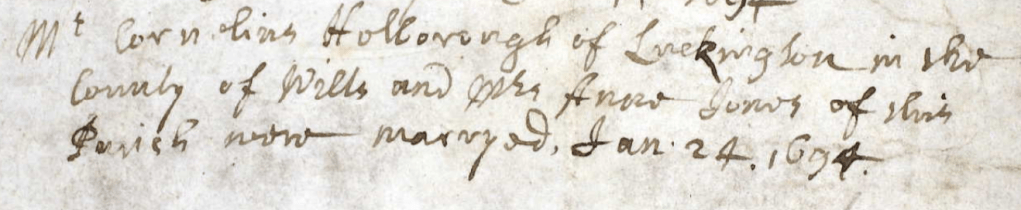 1694
Mr Cornelius Hollorough of Luckington in the
County of Wilts and Mrs Anne Jones of this
Parish were marryed, Jan. 24. 1694.